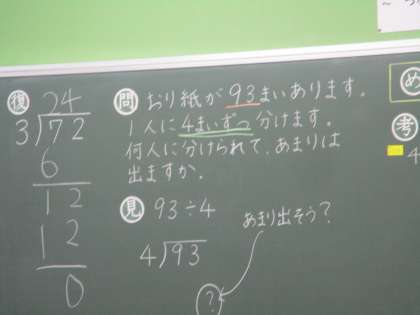 復 24
3)72
6
12
12
0
問 おり紙が93まいあります。
1人に4まいずつ分けます。
何人に分けられて、あまりは
出ますか。
見 93÷4
あまり出そう?
4)93
?
め
考
4